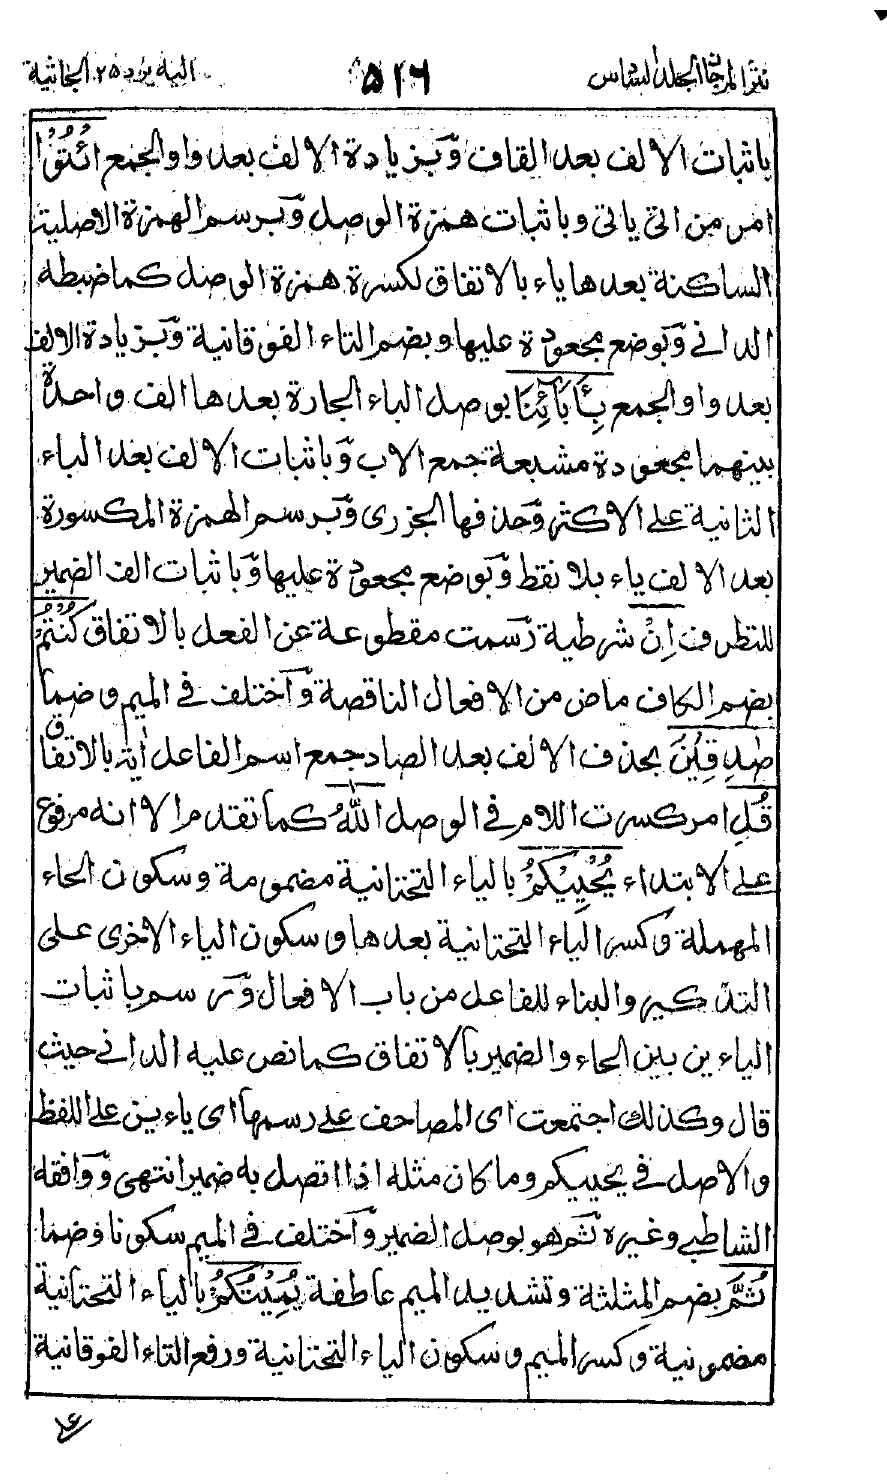 نثر المرجان الجلد السادس ٥٢٦ اليه يرد ٢٥ الجاثية
باثبات الالف بعد القاف وَبزيادة الالف بعد واو الجمع ائْتُوْا
امر من اتى ياتى وباثبات همزة الوصل وَبرسم الهمزة الاصلية
الساكنة بعدها ياء بالاتفاق لكسرة همزة الوصل كما ضبطه
الدانى وَبوضع مجعودة عليها وبضم التاء الفوقانية وَبزيادة الالف
بعد واو الجمع بِـَٔابَآئِنَا بوصل الباء الجارة بعدها الف واحدة
بينهما مجعودة مشبعة جمع الاب وَباثبات الالف بعد الباء
الثانية على الاكثر وَحذفها الجزرى وَبرسم الهمزة المكسورة
بعد الالف ياء بلا نقط وَبوضع مجعودة عليها وَباثبات الف الضمير
للتطرف اِنْ شرطية رسمت مقطوعة عن الفعل بالاتفاق كُنْتُمْ
بضم الكاف ماض من الافعال الناقصة وَاختلف فى الميم وضما
صٰدِقِيْنَ بحذف الالف بعد الصاد جمع اسم الفاعل اٰية بالاتفاق
قُلِ امر كسرت اللام فى الوصل اللّٰهُ كما تقدم الا انه مرفوع
على الابتداء يُحْيِيْكُمْ بالياء التحتانية مضمومة وسكون الحاء
المهملة وكسر الياء التحتانية بعدها وسكون الياء الاخرى على
التذكير والبناء للفاعل من باب الافعال وَرسم باثبات
الياءين بين الحاء والضمير بالاتفاق كما نص عليه الدانى حيث
قال وكذلك اجتمعت اى المصاحف على رسمها اى ياءين على اللفظ
والاصل فى يحييكم وما كان مثله اذا اتصل به ضمير انتهى وَوافقه
الشاطبى وغيره ثم هو بوصل الضمير وَاختلف فى الميم سكونا وضما
ثُمَّ بضم المثلثة وتشديد الميم عاطفة يُمِيْتُكُمْ بالياء التحتانية
مضمونية وكسر الميم وسكون الياء التحتانية ورفع التاء الفوقانية